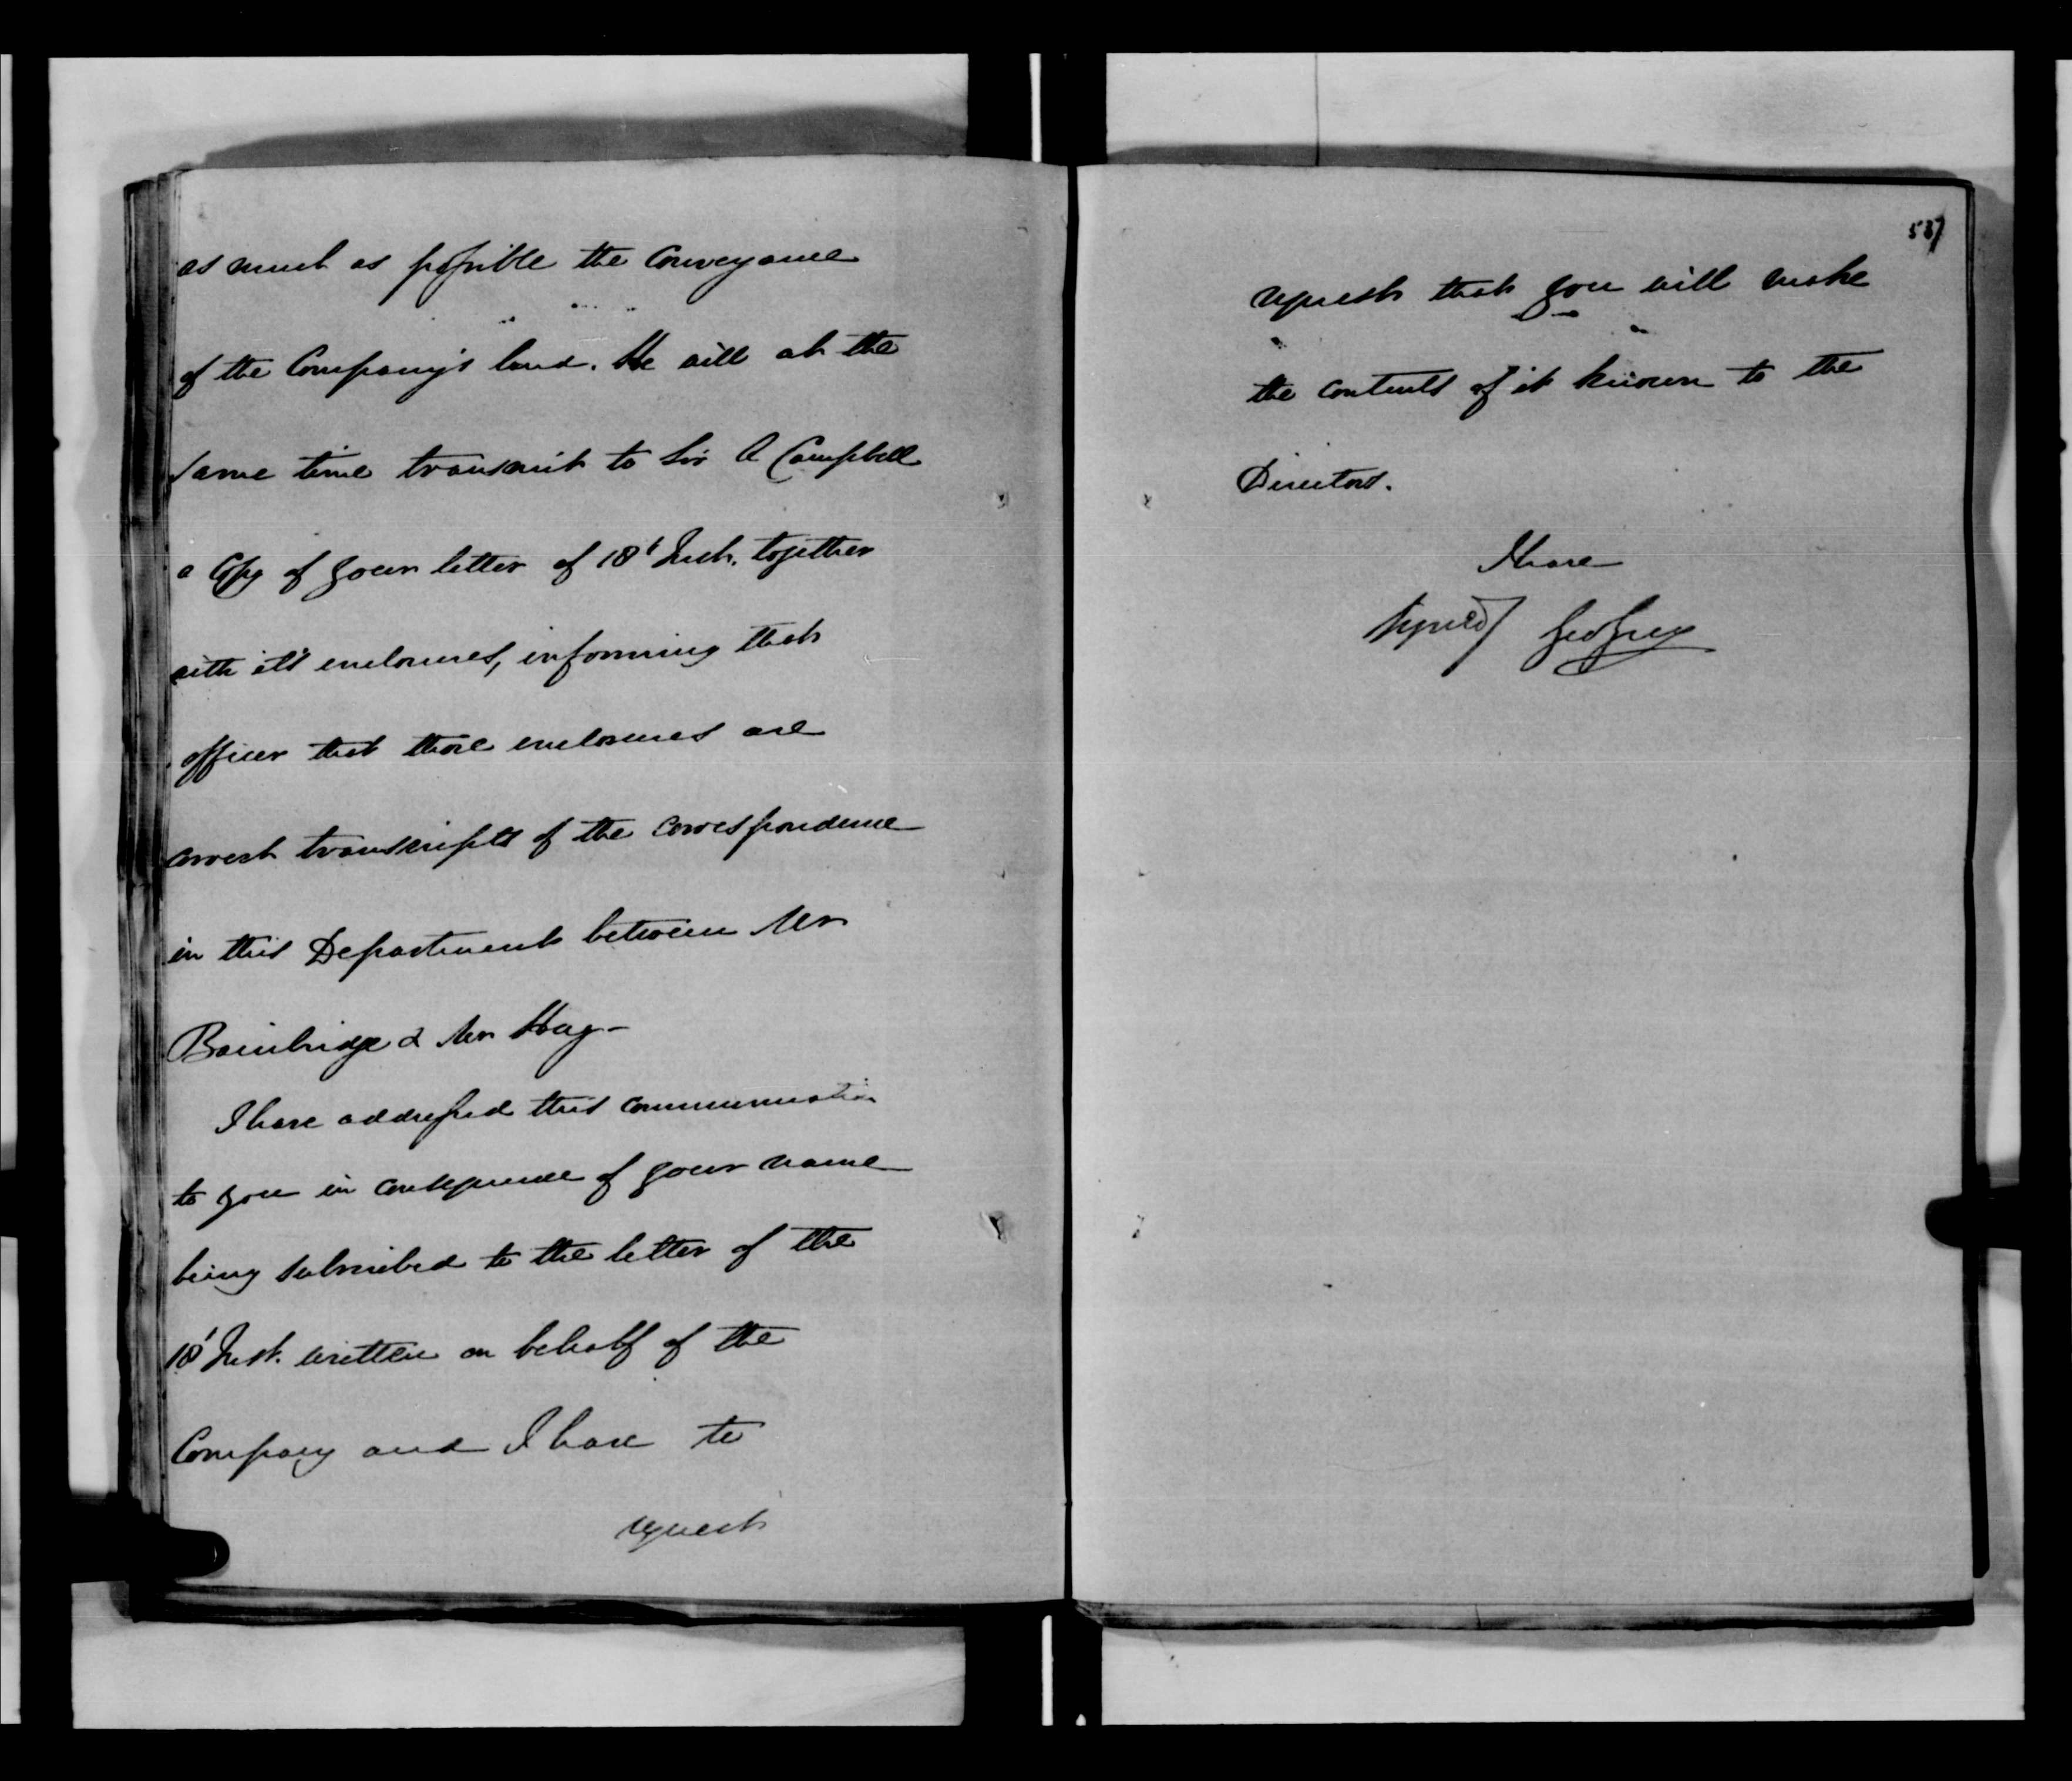 as much as possible the Conveyance
of the Company's land. He will at the
same time transmit to Sir A Campbell
a Copy of your letter of 18t Inst. together
with it's enclosures, informing that
officer that those enclosures are
correct transcripts of the correspondence
in this Department between Mr
Bainbridge & Mr Hay -
I have addressed this communication
to you in consequence of your name
being subscribed to the letter of the
18t Inst. written on behalf of the
Company and I have to
request
537
request that you will make
the contents of it known to the
Directors.
I have
signed) Geo Grey